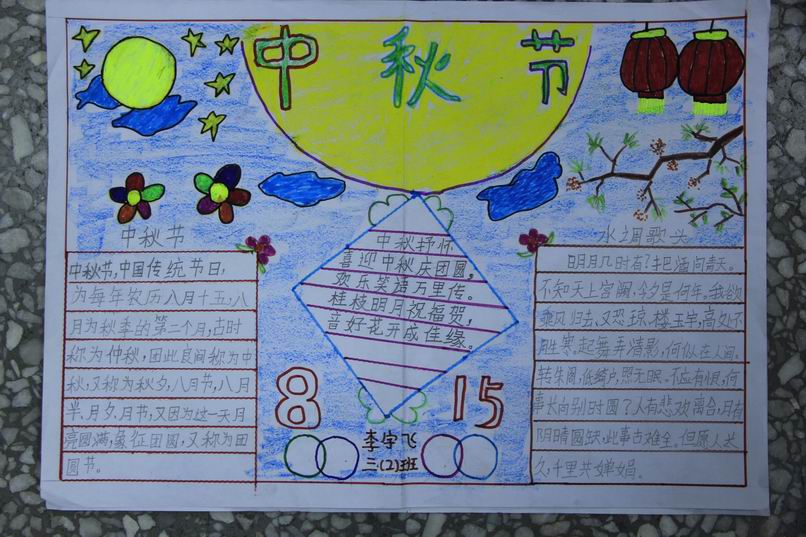 中秋节
中秋节
中秋节,中国传统节日,
为每年农历八月十五,八
月为秋季的第二个月,古时
称为仲秋,因此民间称为中
秋,又称为秋夕,八月节,八月
半,月夕,月节,又因为这一天月
亮圆满,象征团圆,又称为团
圆节。
中秋抒怀
喜迎中秋庆团圆,
欢乐笑涛万里传。
桂枝明月祝福贺,
音好花开成佳缘。
8 15
李宇飞
三(2)班
水调歌头
明月几时有?把酒问青天。
不知天上宫阙,今夕是何年。我欲
乘风归去,又恐琼楼玉宇,高处不
胜寒,起舞弄清影,何似在人间。
转朱阁,低绮户,照无眠。不应有恨,何
事长向别时圆?人有悲欢离合,月有
阴晴圆缺,此事古难全。但原人长
久,千里共婵娟。